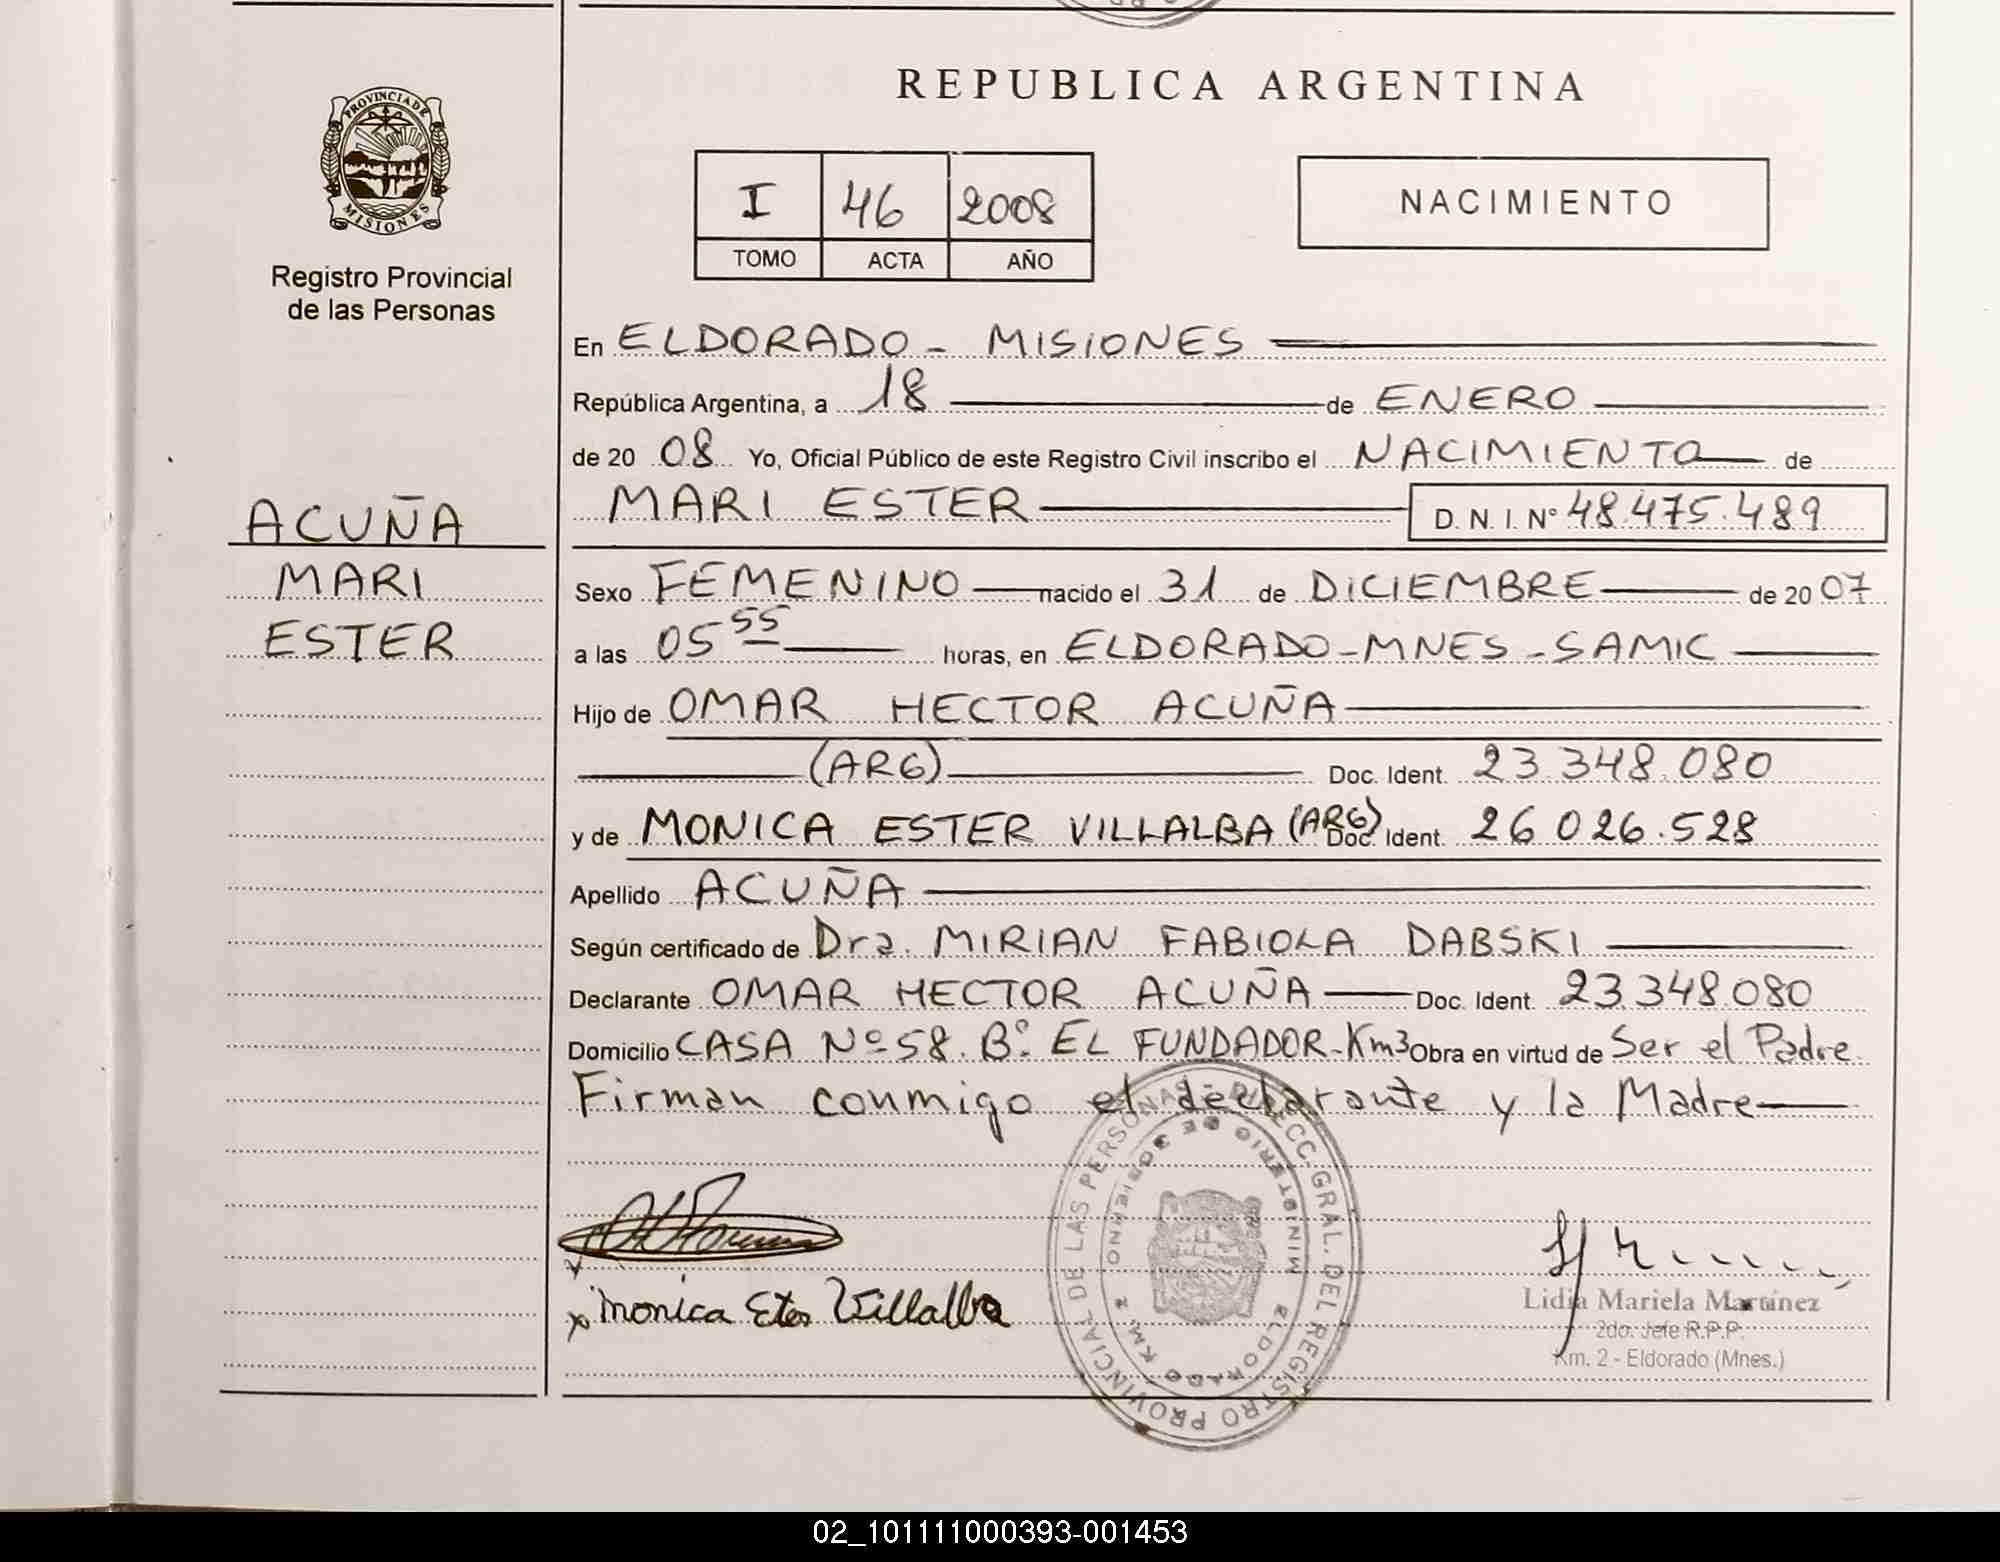 REPUBLICA ARGENTINA
PROVINCIA DE
MISIONES
Registro Provincial
de las Personas
I 46 2008
TOMO ACTA AÑO
NACIMIENTO
En ELDORADO - MISIONES
República Argentina, a 18 de ENERO
de 20 08 Yo, Oficial Público de este Registro Civil inscribo el NACIMIENTO de
MARI ESTER D. N. I. Nº 48.475.489
ACUÑA
MARI
ESTER
Sexo FEMENINO nacido el 31 de DICIEMBRE de 20 07
a las 05 55 horas, en ELDORADO-MNES-SAMIC
Hijo de OMAR HECTOR ACUÑA
(ARG) Doc. Ident. 23.348.080
y de MONICA ESTER VILLALBA (ARG) Doc. Ident. 26.026.528
Apellido ACUÑA
Según certificado de Dra. MIRIAN FABIOLA DABSKI
Declarante OMAR HECTOR ACUÑA Doc. Ident. 23.348.080
Domicilio CASA Nº 58. Bº. EL FUNDADOR-Km3 Obra en virtud de Ser el Padre.
Firman conmigo el declarante y la Madre
x Monica Ester Villalba
REGISTRO PROVINCIAL DE LAS PERSONAS - DIRECC. GRAL. DEL
MINISTERIO DE GOBIERNO
ELDORADO KM. 2
Lidia Mariela Martinez
2do. Jefe R.P.P.
Km. 2 - Eldorado (Mnes.)
02_101111000393-001453